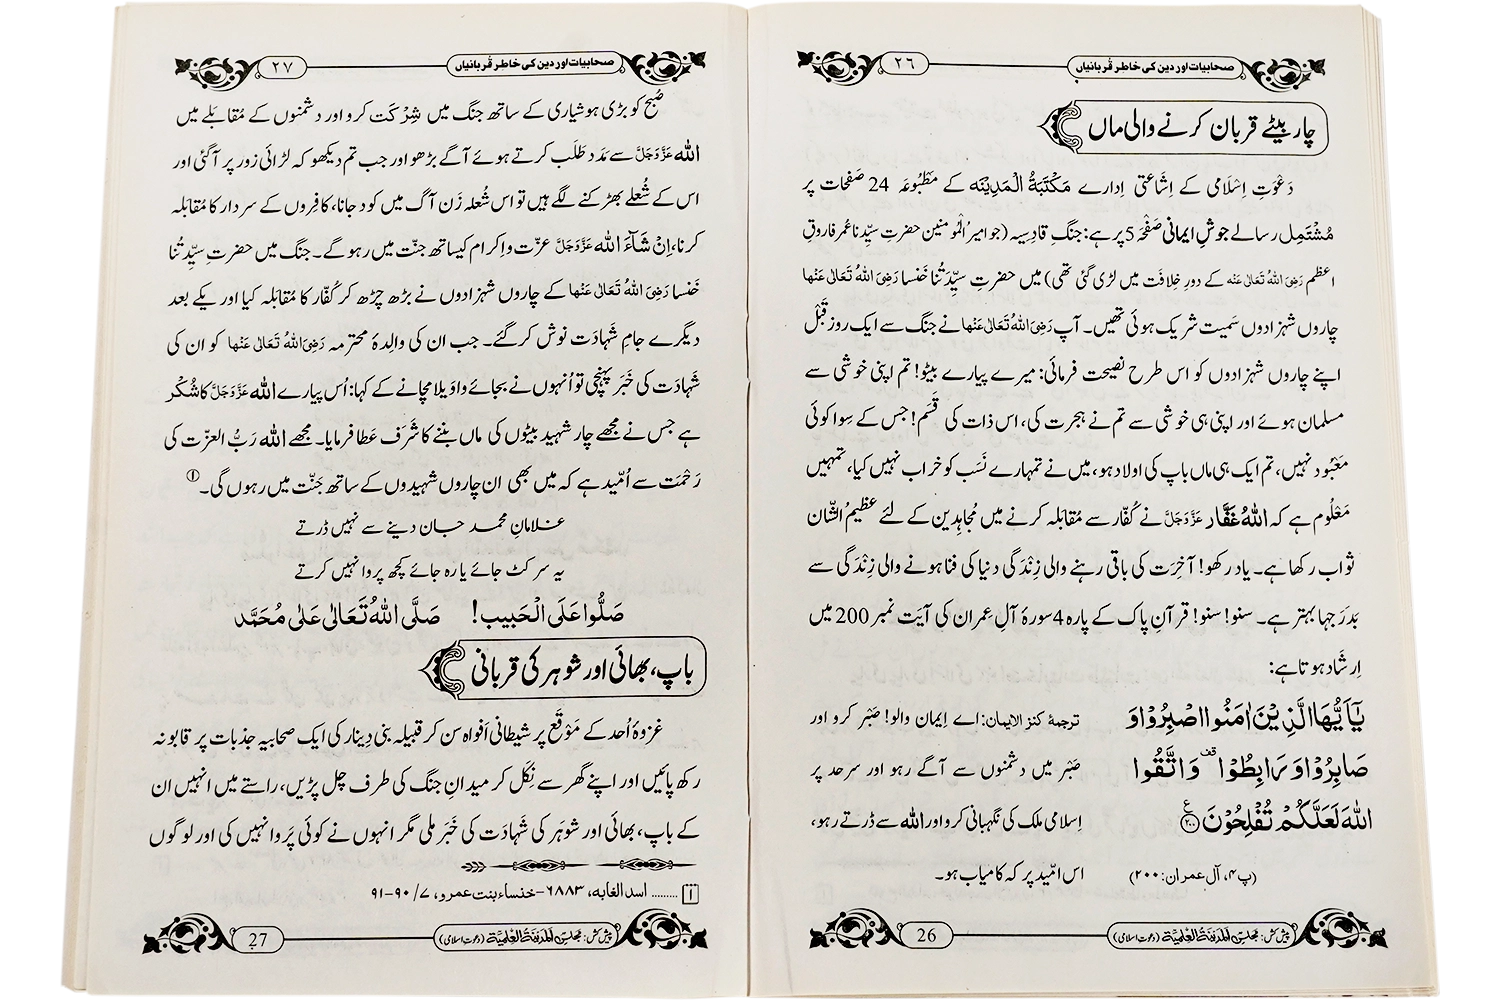 صحابیات اور دین کی خاطر قربانیاں ٢٦
چار بیٹے قربان کرنے والی ماں
دَعْوَتِ اِسْلَامی کے اِشاعتی اِدارے مَکْتَبَۃُ الْمَدِیْنَه کے مَطْبُوعَہ 24 صَفحات پر
مُشْتَمِل رسالے جوشِ ایمانی صَفْحَہ 5 پر ہے: جنگِ قادِسِیہ (جو امیرُ الْمُؤمنین حضرتِ سیِّدنا عُمر فاروقِ
اعظم رَضِیَ اللهُ تَعَالٰی عَنْہ کے دورِ خِلافَت میں لڑی گئی تھی) میں حضرتِ سیِّدَتُنا خَنسا رَضِیَ اللهُ تَعَالٰی عَنْها
چاروں شہزادوں سَمِیت شریک ہوئی تھیں۔ آپ رَضِیَ اللهُ تَعَالٰی عَنْها نے جنگ سے ایک روز قَبْل
اپنے چاروں شہزادوں کو اس طرح نصیحت فرمائی: میرے پیارے بیٹو! تم اپنی خوشی سے
مسلمان ہوئے اور اپنی ہی خوشی سے تم نے ہجرت کی، اس ذات کی قَسَم! جس کے سِوا کوئی
مَعْبُود نہیں، تم ایک ہی ماں باپ کی اولاد ہو، میں نے تمہارے نَسَب کو خراب نہیں کیا، تمہیں
مَعْلُوم ہے کہ اللهُ غَفَّار عَزَّوَجَلَّ نے کُفّار سے مُقابَلہ کرنے میں مُجاہِدین کے لئے عظیمُ الشّان
ثواب رکھا ہے۔ یاد رکھو! آخِرَت کی باقی رہنے والی زِنْدَگی دنیا کی فنا ہونے والی زِنْدَگی سے
بدرَجہا بہتر ہے۔ سنو! سنو! قرآنِ پاک کے پارہ 4 سورۂ آلِ عِمران کی آیَت نمبر 200 میں
اِرشاد ہوتا ہے:
یٰۤاَیُّهَا الَّذِیْنَ اٰمَنُوا اصْبِرُوْا وَ ترجمۂ کنز الایمان: اے اِیمان والو! صَبْر کرو اور
صَابِرُوْا وَ رَابِطُوْا ۫ وَ اتَّقُوا صَبْر میں دشمنوں سے آگے رہو اور سرحد پر
اللّٰهَ لَعَلَّكُمْ تُفْلِحُوْنَ ﴿۲۰۰﴾ اِسلامی ملک کی نگہبانی کرو اور الله سے ڈرتے رہو،
(پ ۴، آل عمران: ۲۰۰) اس اُمّید پر کہ کامیاب ہو۔
پیش کش: مجلس المدینۃ العلمیۃ (دعوتِ اسلامی) 26
صحابیات اور دین کی خاطر قربانیاں ٢٧
صُبح کو بڑی ہوشیاری کے ساتھ جنگ میں شِرْکَت کرو اور دشمنوں کے مُقابَلے میں
الله عَزَّوَجَلَّ سے مَدَد طَلَب کرتے ہوئے آگے بڑھو اور جب تم دیکھو کہ لڑائی زور پر آگئی اور
اس کے شُعلے بھڑکنے لگے ہیں تو اس شُعلہ زَن آگ میں کود جانا، کافِروں کے سردار کا مُقابَلہ
کرنا، اِنْ شَآءَ الله عَزَّوَجَلَّ عزّت و اِکرام کیساتھ جنّت میں رہو گے۔ جنگ میں حضرتِ سیِّدَتُنا
خَنسا رَضِیَ اللهُ تَعَالٰی عَنْها کے چاروں شہزادوں نے بڑھ چڑھ کر کُفّار کا مُقابَلہ کیا اور یکے بعد
دیگرے جامِ شَہادَت نوش کر گئے۔ جب ان کی والِدۂ محترمہ رَضِیَ اللهُ تَعَالٰی عَنْها کو ان کی
شَہادَت کی خَبَر پہنچی تو اُنہوں نے بجائے واوَیلا مچانے کے کہا: اُس پیارے الله عَزَّوَجَلَّ کا شُکْر
ہے جس نے مجھے چار شہید بیٹوں کی ماں بننے کا شَرَف عَطا فرمایا۔ مجھے الله رَبُّ العزّت کی
رَحْمَت سے اُمّید ہے کہ میں بھی ان چاروں شہیدوں کے ساتھ جَنّت میں رہوں گی۔ ①
غلامانِ محمد جان دینے سے نہیں ڈرتے
یہ سر کٹ جائے یا رہ جائے کچھ پروا نہیں کرتے
صَلُّوا عَلَی الْحَبِیب! صَلَّی اللهُ تَعَالٰی عَلٰی مُحَمَّد
باپ، بھائی اور شوہر کی قربانی
غزوۂ اُحد کے مَوْقَع پر شیطانی اَفواہ سن کر قبیلہ بنی دِینار کی ایک صحابیہ جذبات پر قابو نہ
رکھ پائیں اور اپنے گھر سے نِکَل کر میدانِ جنگ کی طرف چل پڑیں، راستے میں انہیں ان
کے باپ، بھائی اور شوہَر کی شَہادَت کی خَبَر ملی مگر انہوں نے کوئی پَروا نہیں کی اور لوگوں
۱ ........ اسد الغابہ، ۶۸۸۳-خنساء بنت عمرو، ۷/ ۹۰-۹۱
پیش کش: مجلس المدینۃ العلمیۃ (دعوتِ اسلامی) 27